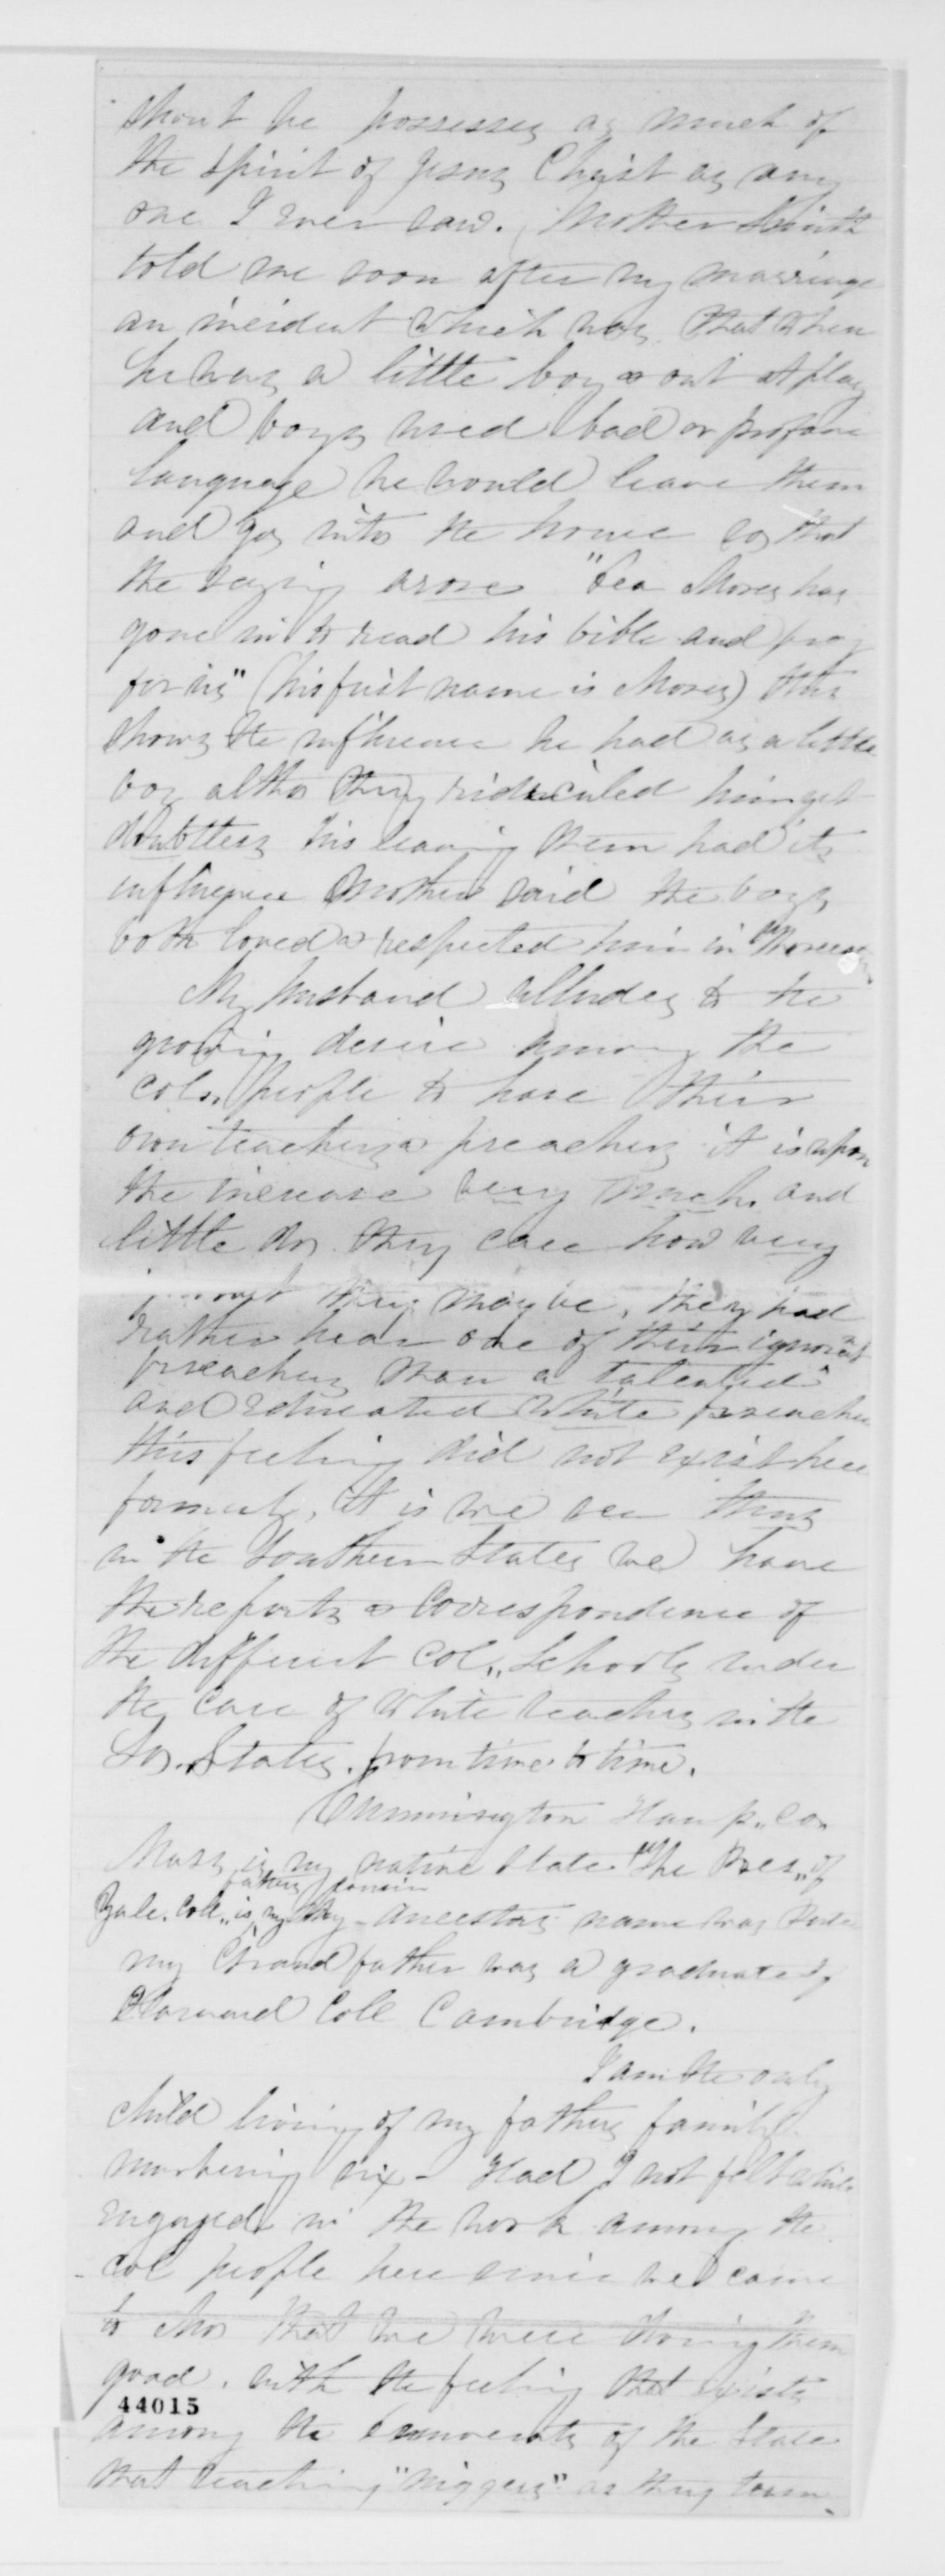 think he possesses as much of
the spirit of Jesus Christ as any
one I ever saw. Mother Smith
told me soon after my marriage
an incident which was that when
he was a little boy & out at play
and boys used bad or profane
language he would leave them
and go into the house so that
the saying arose "Dea Moses has
gone in to read his bible and pray
for us" (his first name is Moses) this
shows the influence he had as a little
boy altho they ridiculed him yet
doubtless his leaving them had its
influence Mother said the boys
both loved & respected him in
My husband alludes to the
growing desire among the
col. people to have their
own teachers & preachers it is upon
the increase very much and
little do they care how very
ignorant they may be, they had
rather hear one of their ignorant
preachers than a talented
and educated white preacher
this feeling did not exist here
formerly, it is we see thus
in the Southern States we have
the reports & correspondence of
the different Col,, Schools under
the care of white teachers in the
So. States. from time to time.
Cummington Hamp,, Co.
Mass is my native State The Pres,, of
fathers cousin
Yale. Coll,, is my ancestors name was
my Grand father was a graduate of
Harvard Coll Cambridge.
I am the only
child living of my fathers family
numbering six - Had I not felt while
engaged in the work among the
col people here since we came
to Mo that we were doing them
good. with the feeling that exists
44015
among the democrats of the State
that teaching "niggers" as they term